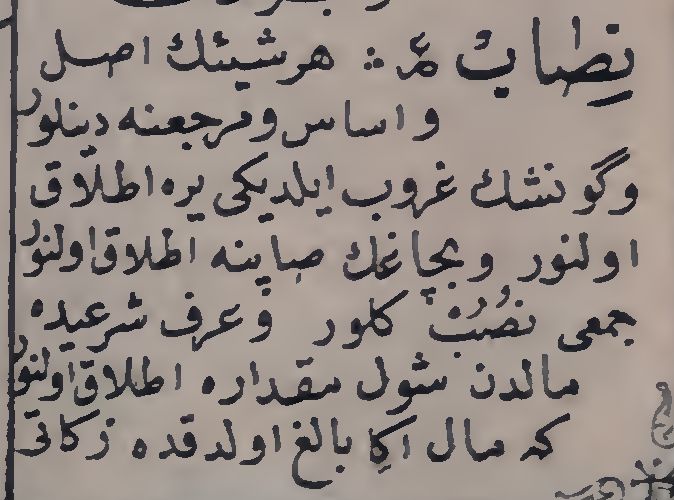 نِصَابْ عر : هر شيئك اصل
و اساس و مرجعنه دينلور
و كونشك غروب ايلديكى يره اطلاق
اولنور و بچاغك صاپنه اطلاق اولنور
جمعى نُصُبْ كلور و عرف شرعيده
مالدن شول مقداره اطلاق اولنور
كه مال اكا بالغ اولدقده زكاتى